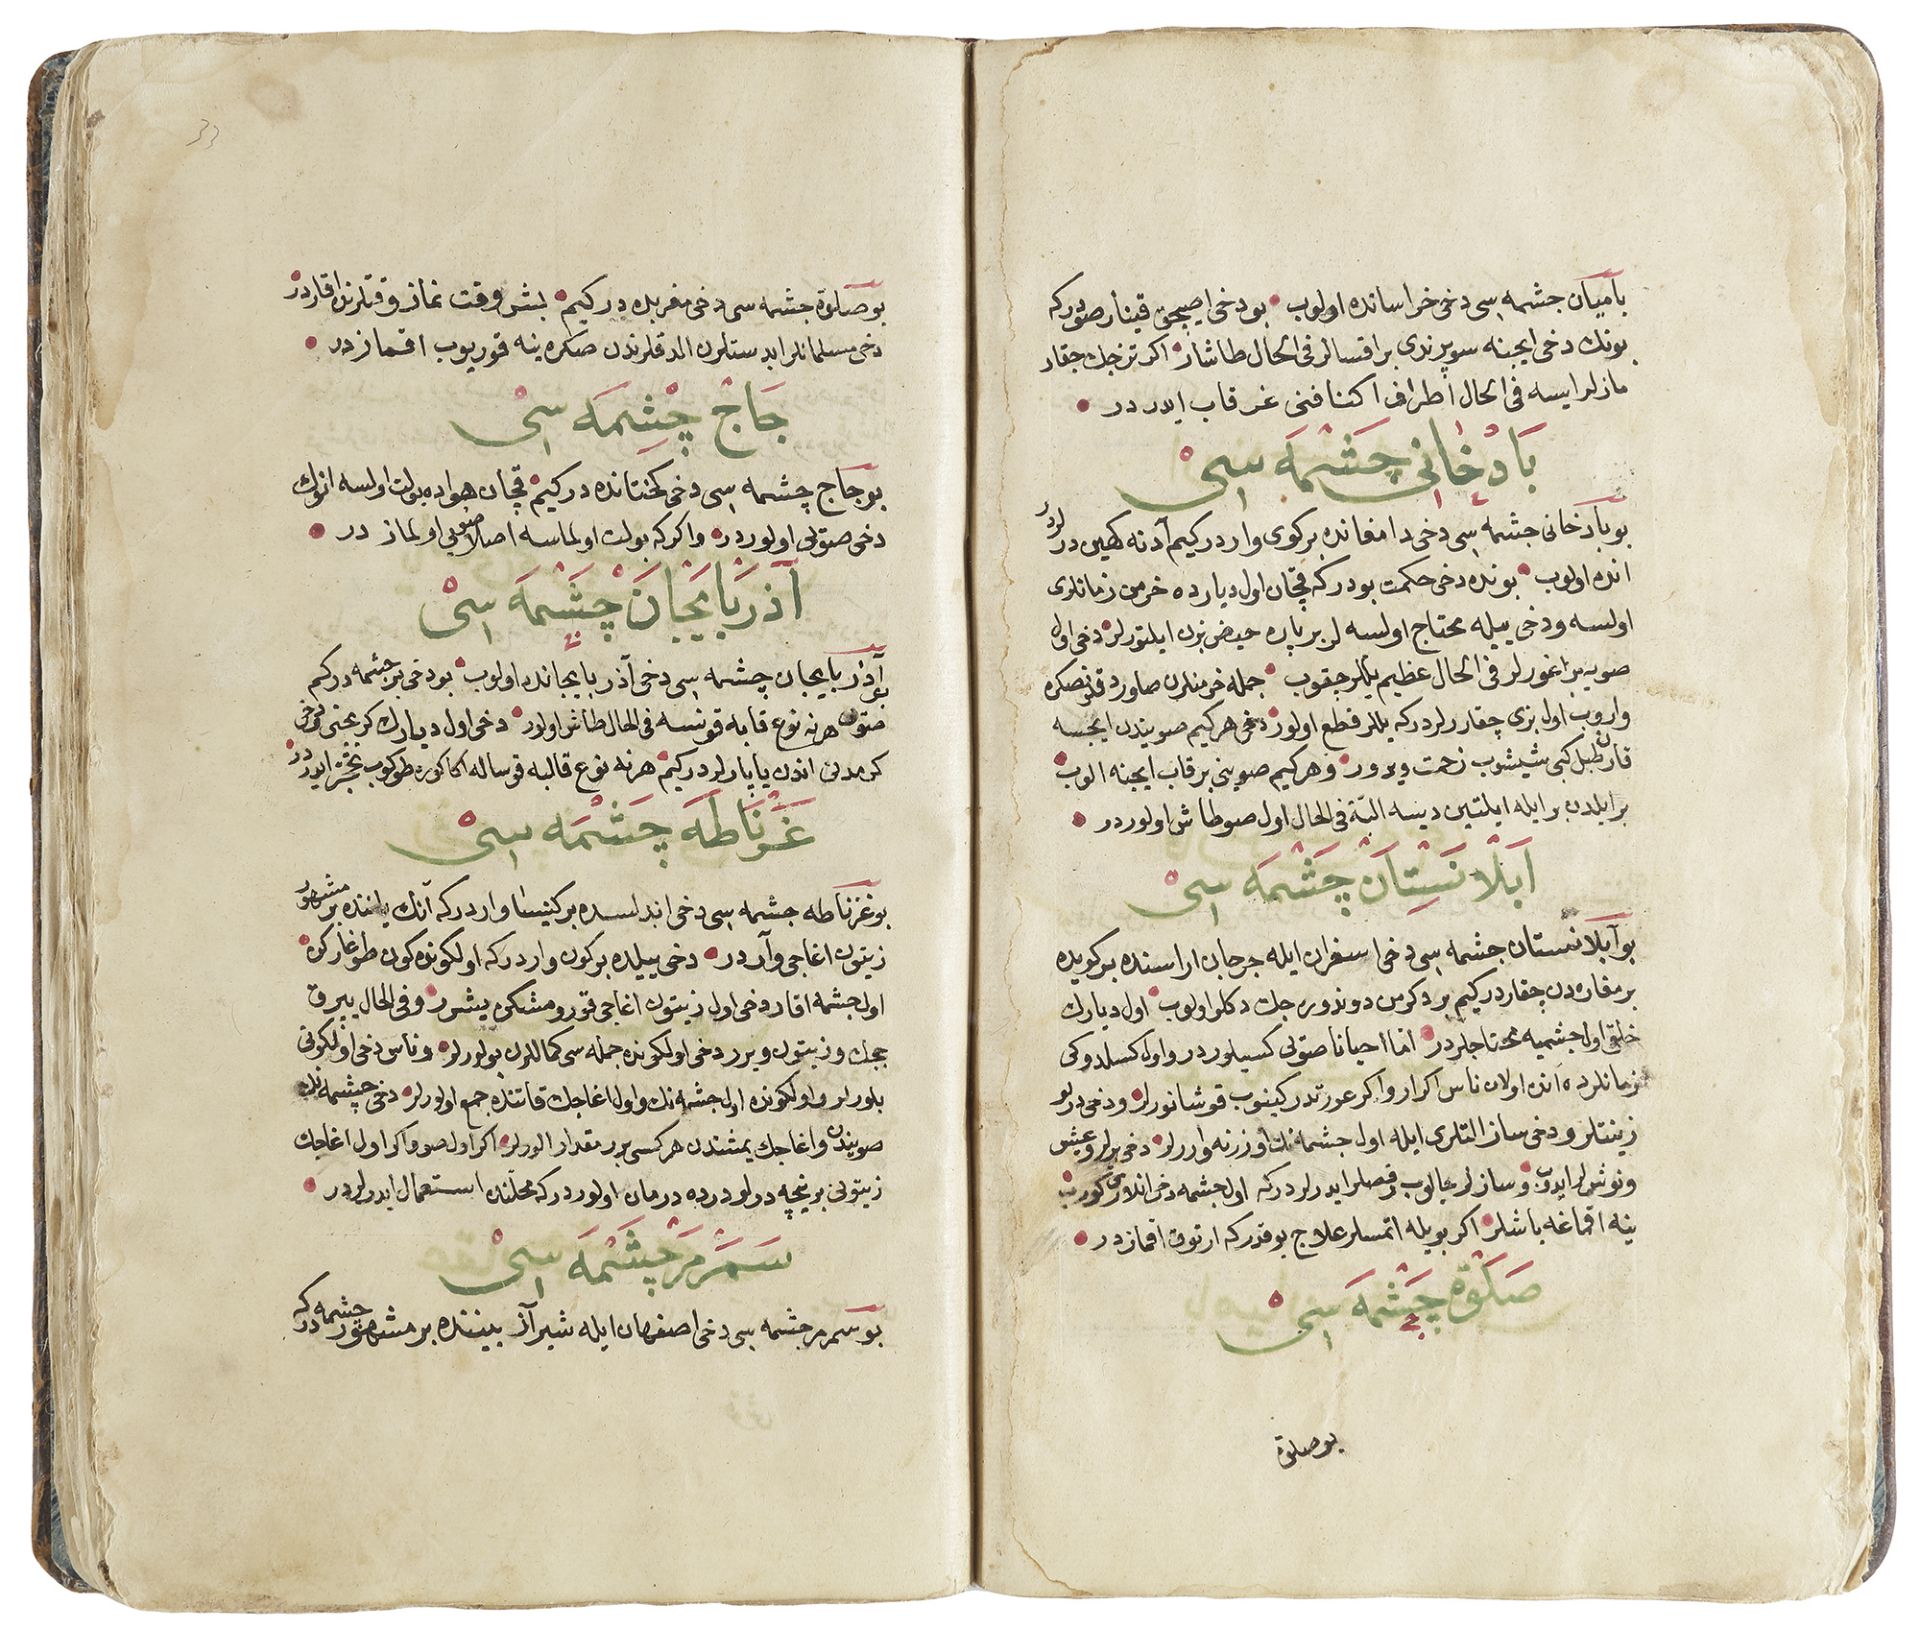 بامیان جشمه سی دخی خراسانده اولوب بو دخی اصیجق قینار صودر که
بونك دخی ایجنه سوپرندی براقسالر فی الحال طاشار اکر تزجك جقار
مازلر ایسه فی الحال اطراف اکنافنی غرقاب ایدر در
بَادْخَانِی چَشْمَه سِیْ
بو بادخانی جشمه سی دخی دامغانده بر کوی واردر کیم آدنه کهین درلردر
انده اولوب بونده دخی حکمت بودر که قچان اول دیارده خرمن زمانلری
اولسه ودخی ییله محتاج اولسه لر بر پاره حیض بزن ایلتورلر دخی اول
صویه براغورلر فی الحال عظیم یللر جقوب جمله خرمنلرن صاوردقلرنصکره
واروب اول بزی چقارلردر که یللر قطع اولور دخی هر کیم صویندن ایجسه
قارن طبل کبی شیشوب زحمت ویرور وهر کیم صوینی بر قاب ایجنه الوب
بر ایلدن بر ایله ایلتین دیسه البتّه فی الحال اول صو طاش اولوردر
اَبْلَانَسْتَانْ چَشْمَه سِیْ
بو آبلانستان جشمه سی دخی اسفران ایله جرجان اراسنده بر کویده
بر مغاره دن چقاردر کیم بر دکرمن دوندوره جك دکلو اولوب اول دیارك
خلقی اول جشمیه محتاجلردر اما احیانا صوّی کسیلوردر واول کسلدوکی
زمانلرده انده اولان ناس اکر ار واکر عورتدر کینوب قوشانورلر ودخی درلو
زینتلر ودخی ساز التلری ایله اول جشمه نك اوزرنه وارلر دخی یرلر وعیش
ونوش لر ایدوب وسازلر چالوب رقصلر ایدرلردر که اول جشمه دخی انلاری کورب
ینه اقماغه باشلر اکر بویله اتمسلر علاج یوقدر که ارتوق اقمازدر
صَلٰوة چَشْمَه سِیْ
بو صلوة
بو صلوة جشمه سی دخی مغربده در کیم بش وقت نماز وقتلرنده اقاردر
دخی مسلمانلر ابدستلرن الدقلرندن صکره ینه قوریوب اقمازدر
جَاجْ چِشِمَه سِیْ
بو جاج چشمه سی دخی کختانده در کیم قچان هواده بولت اولسه انوك
دخی صوّی اولوردر واکر که بولت اولماسه اصلا صویی اولمازدر
آذَرْبَایْجَانْ چَشْمَه سِیْ
آذربایجان چشمه سی دخی آذربایجانده اولوب بو دخی بر جشمه در کم
صوّن هر نه نوع قابه قونسه فی الحال طاش اولور دخی اول دیارك کرمجی لری دخی
کرمدلن اندن یاپارلردر کیم هر نه نوع قالبه قوسالر اکا کوره طوکوب تحجّر ایدردر
غَرْنَاطَه چَشْمَه سِیْ
بو غرناطه جشمه سی دخی اندلسده بر کنیسا واردر که آنك یاننده بر مشهور
زیتون اغاجی واردر دخی ییلده بر کون واردر که اولکونده کون طوغارکن
اول جشمه اقار دخی اول زیتون اغاجی قورومشکن یشرر وفی الحال یپرق
ججك وزیتون ویرر دخی اولکونده جمله سی کماللرن بولورلر وناس دخی اولکونی
بلورلر واولکونده اول جشمه نك واول اغاجك قاتنده جمع اولورلر دخی چشمه نك
صویندن واغاجك یمشندن هر کسی بر مقدار الورلر اکر اول صو واکر اول اغاجك
زیتونی بر نیچه درلو درده درمان اولوردر که محلنده استعمال ایدرلردر
سَمَرْمَرْ چَشْمَه سِیْ
بو سمرمر جشمه سی دخی اصفهان ایله شیراز بیننده بر مشهور جشمه در که